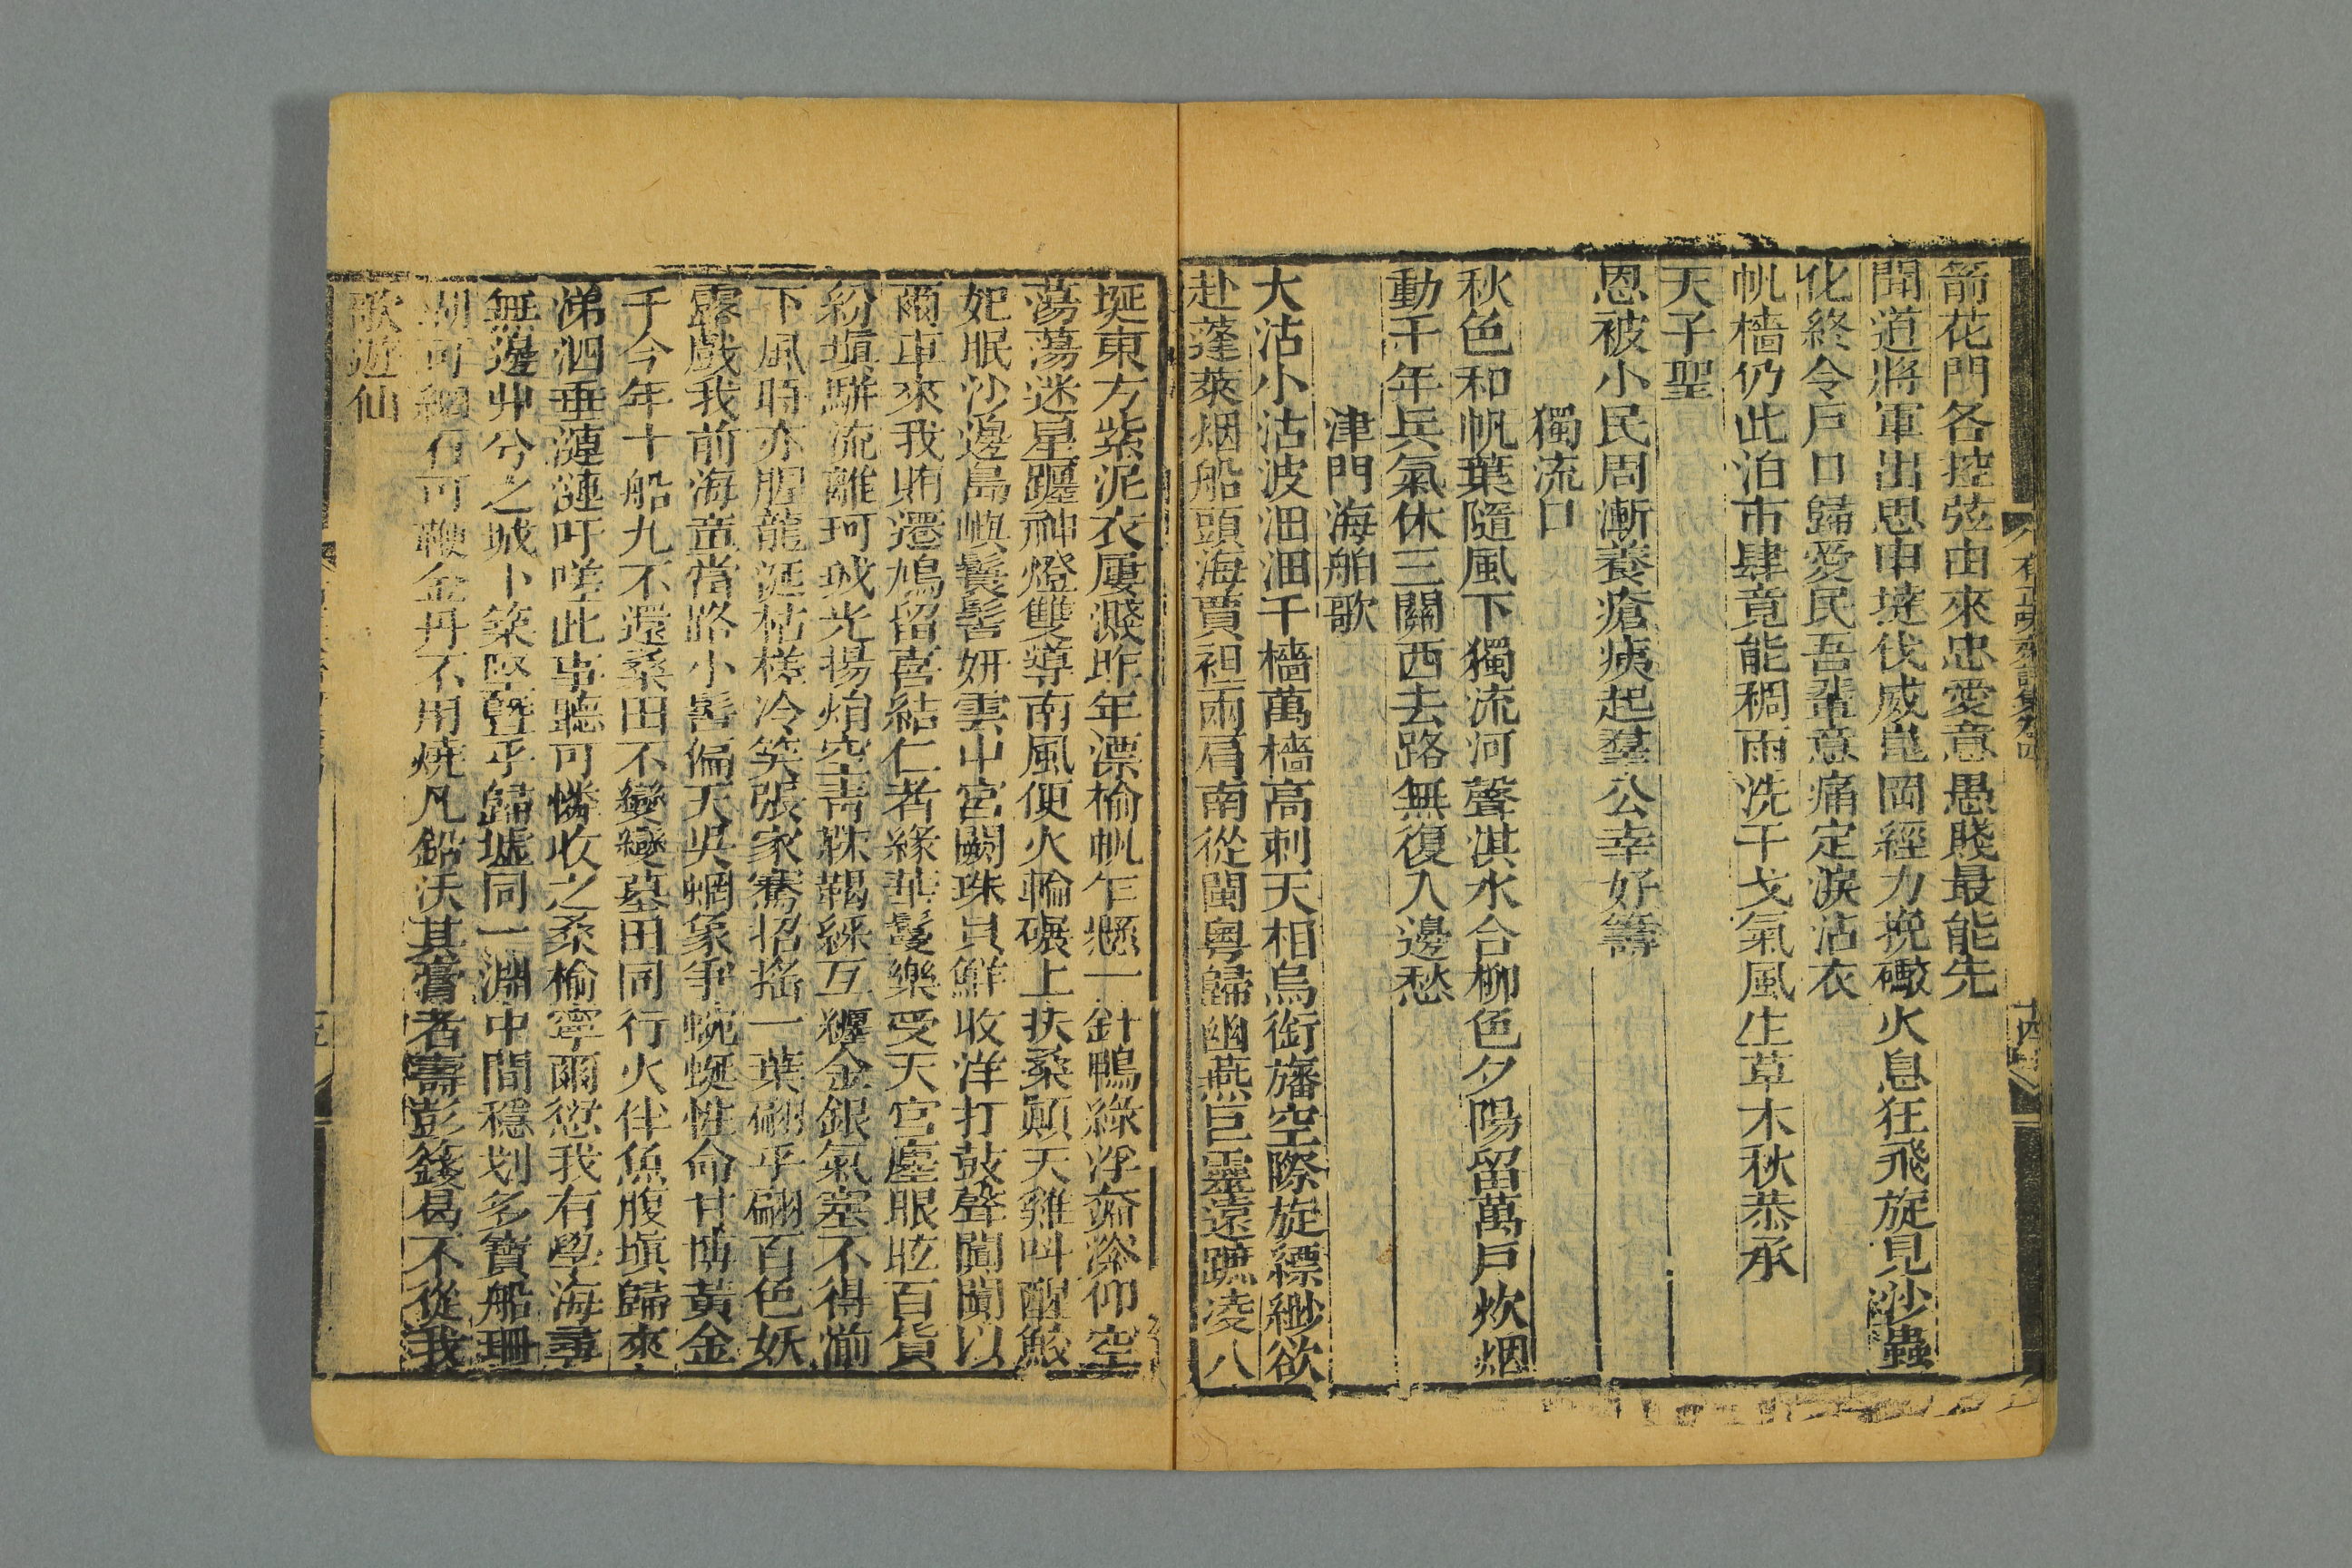 箭花門各控弦由來忠愛意愚賤最能先
聞道將軍出思申撻伐威崑岡經力挽礮火息狂飛旋見沙蟲
化終令戶口歸愛民吾輩意痛定淚沾衣
帆檣仍此泊市肆竟能稠雨洗干戈氣風生草木秋恭承
天子聖
恩被小民周漸養瘡痍起羣公幸好籌
獨流口
秋色和帆葉隨風下獨流河聲淇水合柳色夕陽留萬戶炊烟
動千年兵氣休三關西去路無復入邊愁
津門海舶歌
大沽小沽波沺沺千檣萬檣高刺天相烏銜旛空際旋縹緲欲
赴蓬萊烟船頭海賈袒兩肩南從閩粵歸幽燕巨靈遠蹠凌八
埏東方紫泥衣屢濺昨年漂榆帆乍懸一針鴨綠浮奫淪仰空
蕩蕩迷星躔神燈雙導南風便火輪碾上扶桑顛天雞叫醒鮫
妃眠沙邊島嶼鬟髻妍雲中宮闕珠貝鮮收洋打鼓聲闐闐以
爾車來我賄遷鳩留喜結仁者緣華鬘樂受天宮廛眼眩百貨
紛塡駢流離珂珹光揚焆空青靺鞨綵互纏金銀氣塞不得湔
下風時亦腥龍涎枯槎冷笑張家騫招搖一葉翩乎翩百色妖
露戲我前海童當路小髻偏天吳蝄象爭蜿蜒性命甘博黃金
千今年十船九不還桑田不變變墓田同行火伴魚腹塡歸來
涕泗垂漣漣吁嗟此事聽可憐收之桑榆寧爾愆我有學海尋
無邊丱兮之城卜築堅聱乎歸墟同一淵中間穩划多寶船珊
可 石可鞭金丹不用燒凡鉛沃其膏者壽彭籛曷不從我
歌遊仙
十四